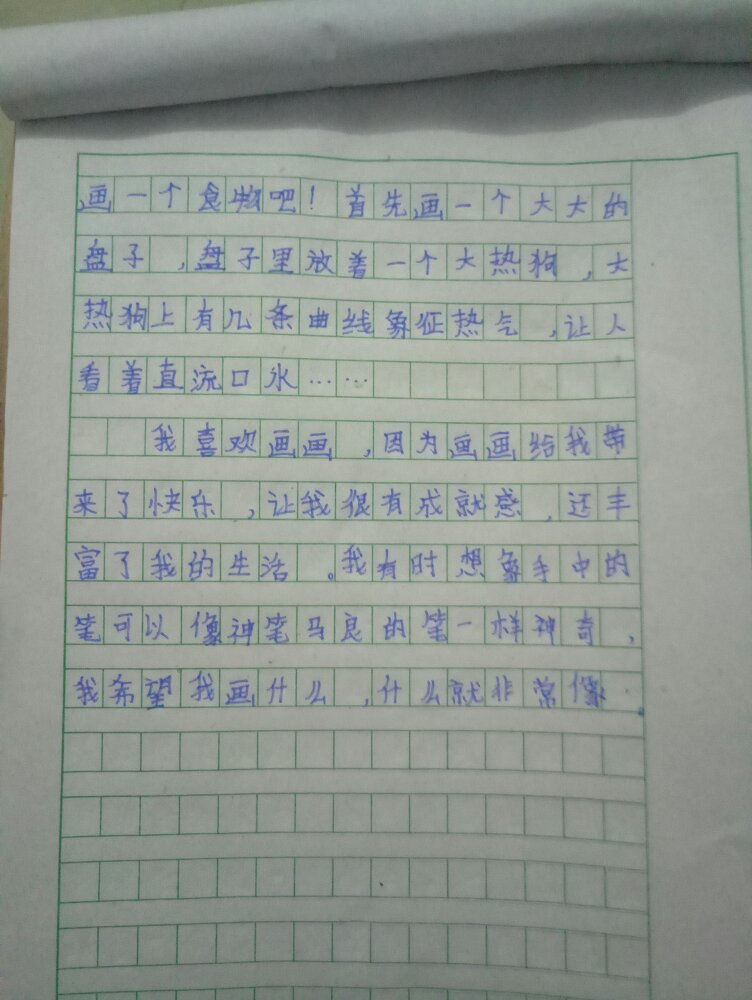 画一个食物吧！首先画一个大大的
盘子，盘子里放着一个大热狗，大
热狗上有几条曲线象征热气，让人
看着直流口水……
我喜欢画画，因为画画给我带
来了快乐，让我很有成就感，还丰
富了我的生活。我有时想象手中的
笔可以像神笔马良的笔一样神奇，
我希望我画什么，什么就非常像.